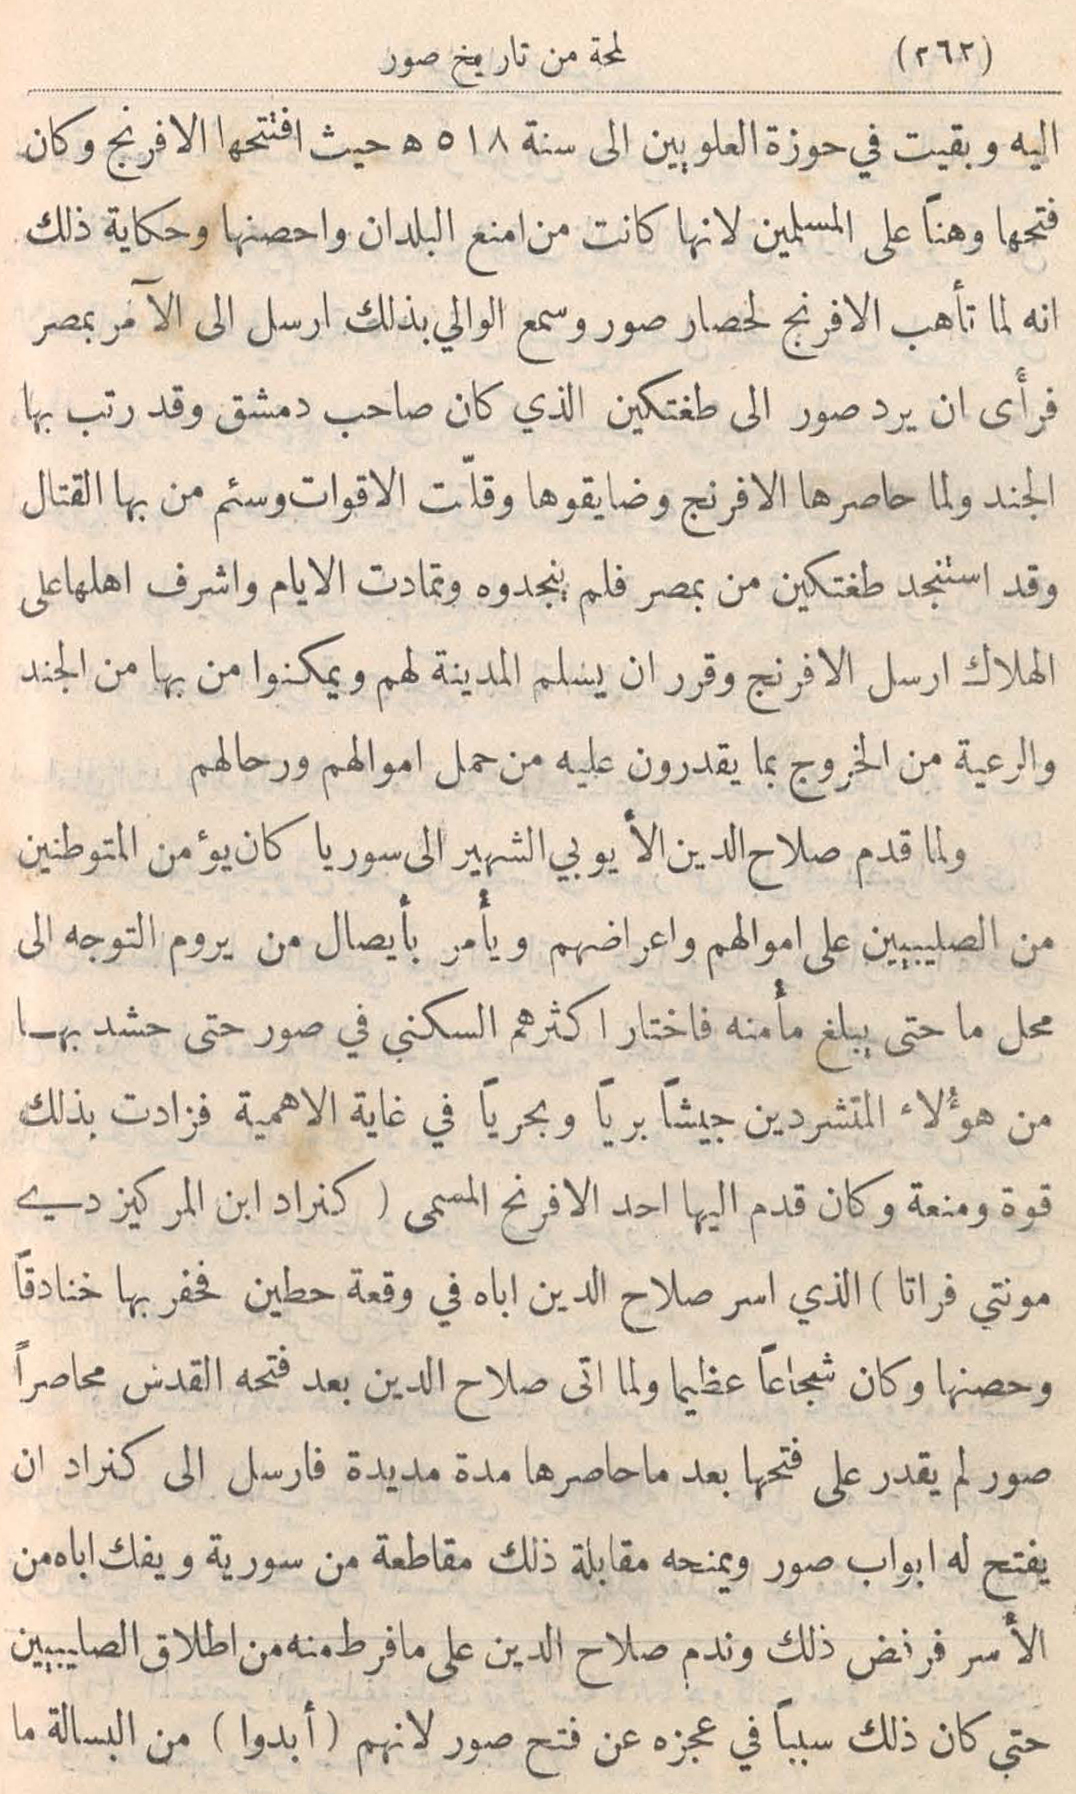 (٢٦٢) لمحة من تاريخ صور
اليه وبقيت في حوزة العلويين الى سنة ٥١٨ ه حيث افتتحها الافرنج وكان
فتحها وهناً على المسلمين لانها كانت من امنع البلدان واحصنها وحكاية ذلك
انه لما تأهب الافرنج لحصار صور وسمع الوالي بذلك ارسل الى الآمر بمصر
فرأى ان يرد صور الى طغتكين الذي كان صاحب دمشق وقد رتب بها
الجند ولما حاصرها الافرنج وضايقوها وقلّت الاقوات وسئم من بها القتال
وقد استنجد طغتكين من بمصر فلم ينجدوه وتمادت الايام واشرف اهلها على
الهلاك ارسل الافرنج وقرر ان يسلم المدينة لهم ويمكنوا من بها من الجند
والرعية من الخروج بما يقدرون عليه من حمل اموالهم ورحالهم
ولما قدم صلاح الدين الأيوبي الشهير الى سوريا كان يؤمن المتوطنين
من الصليبيين على اموالهم واعراضهم ويأمر بأيصال من يروم التوجه الى
محل ما حتى يبلغ مأمنه فاختار اكثرهم السكنى في صور حتى حشد بهـا
من هؤلاء المتشردين جيشاً برياً وبحرياً في غاية الاهمية فزادت بذلك
قوة ومنعة وكان قدم اليها احد الافرنح المسمى ( كنراد ابن المركيز دي
مونتي فراتا ) الذي اسر صلاح الدين اباه في وقعة حطين فحفر بها خنادقاً
وحصنها وكان شجاعاً عظيما ولما اتى صلاح الدين بعد فتحه القدس محاصراً
صور لم يقدر على فتحها بعد ما حاصرها مدة مديدة فارسل الى كنراد ان
يفتح له ابواب صور ويمنحه مقابلة ذلك مقاطعة من سورية ويفك اباه من
الأسر فرفض ذلك وندم صلاح الدين على ما فرط منه من اطلاق الصليبيين
حتى كان ذلك سبباً في عجزه عن فتح صور لانهم ( أبدوا ) من البسالة ما